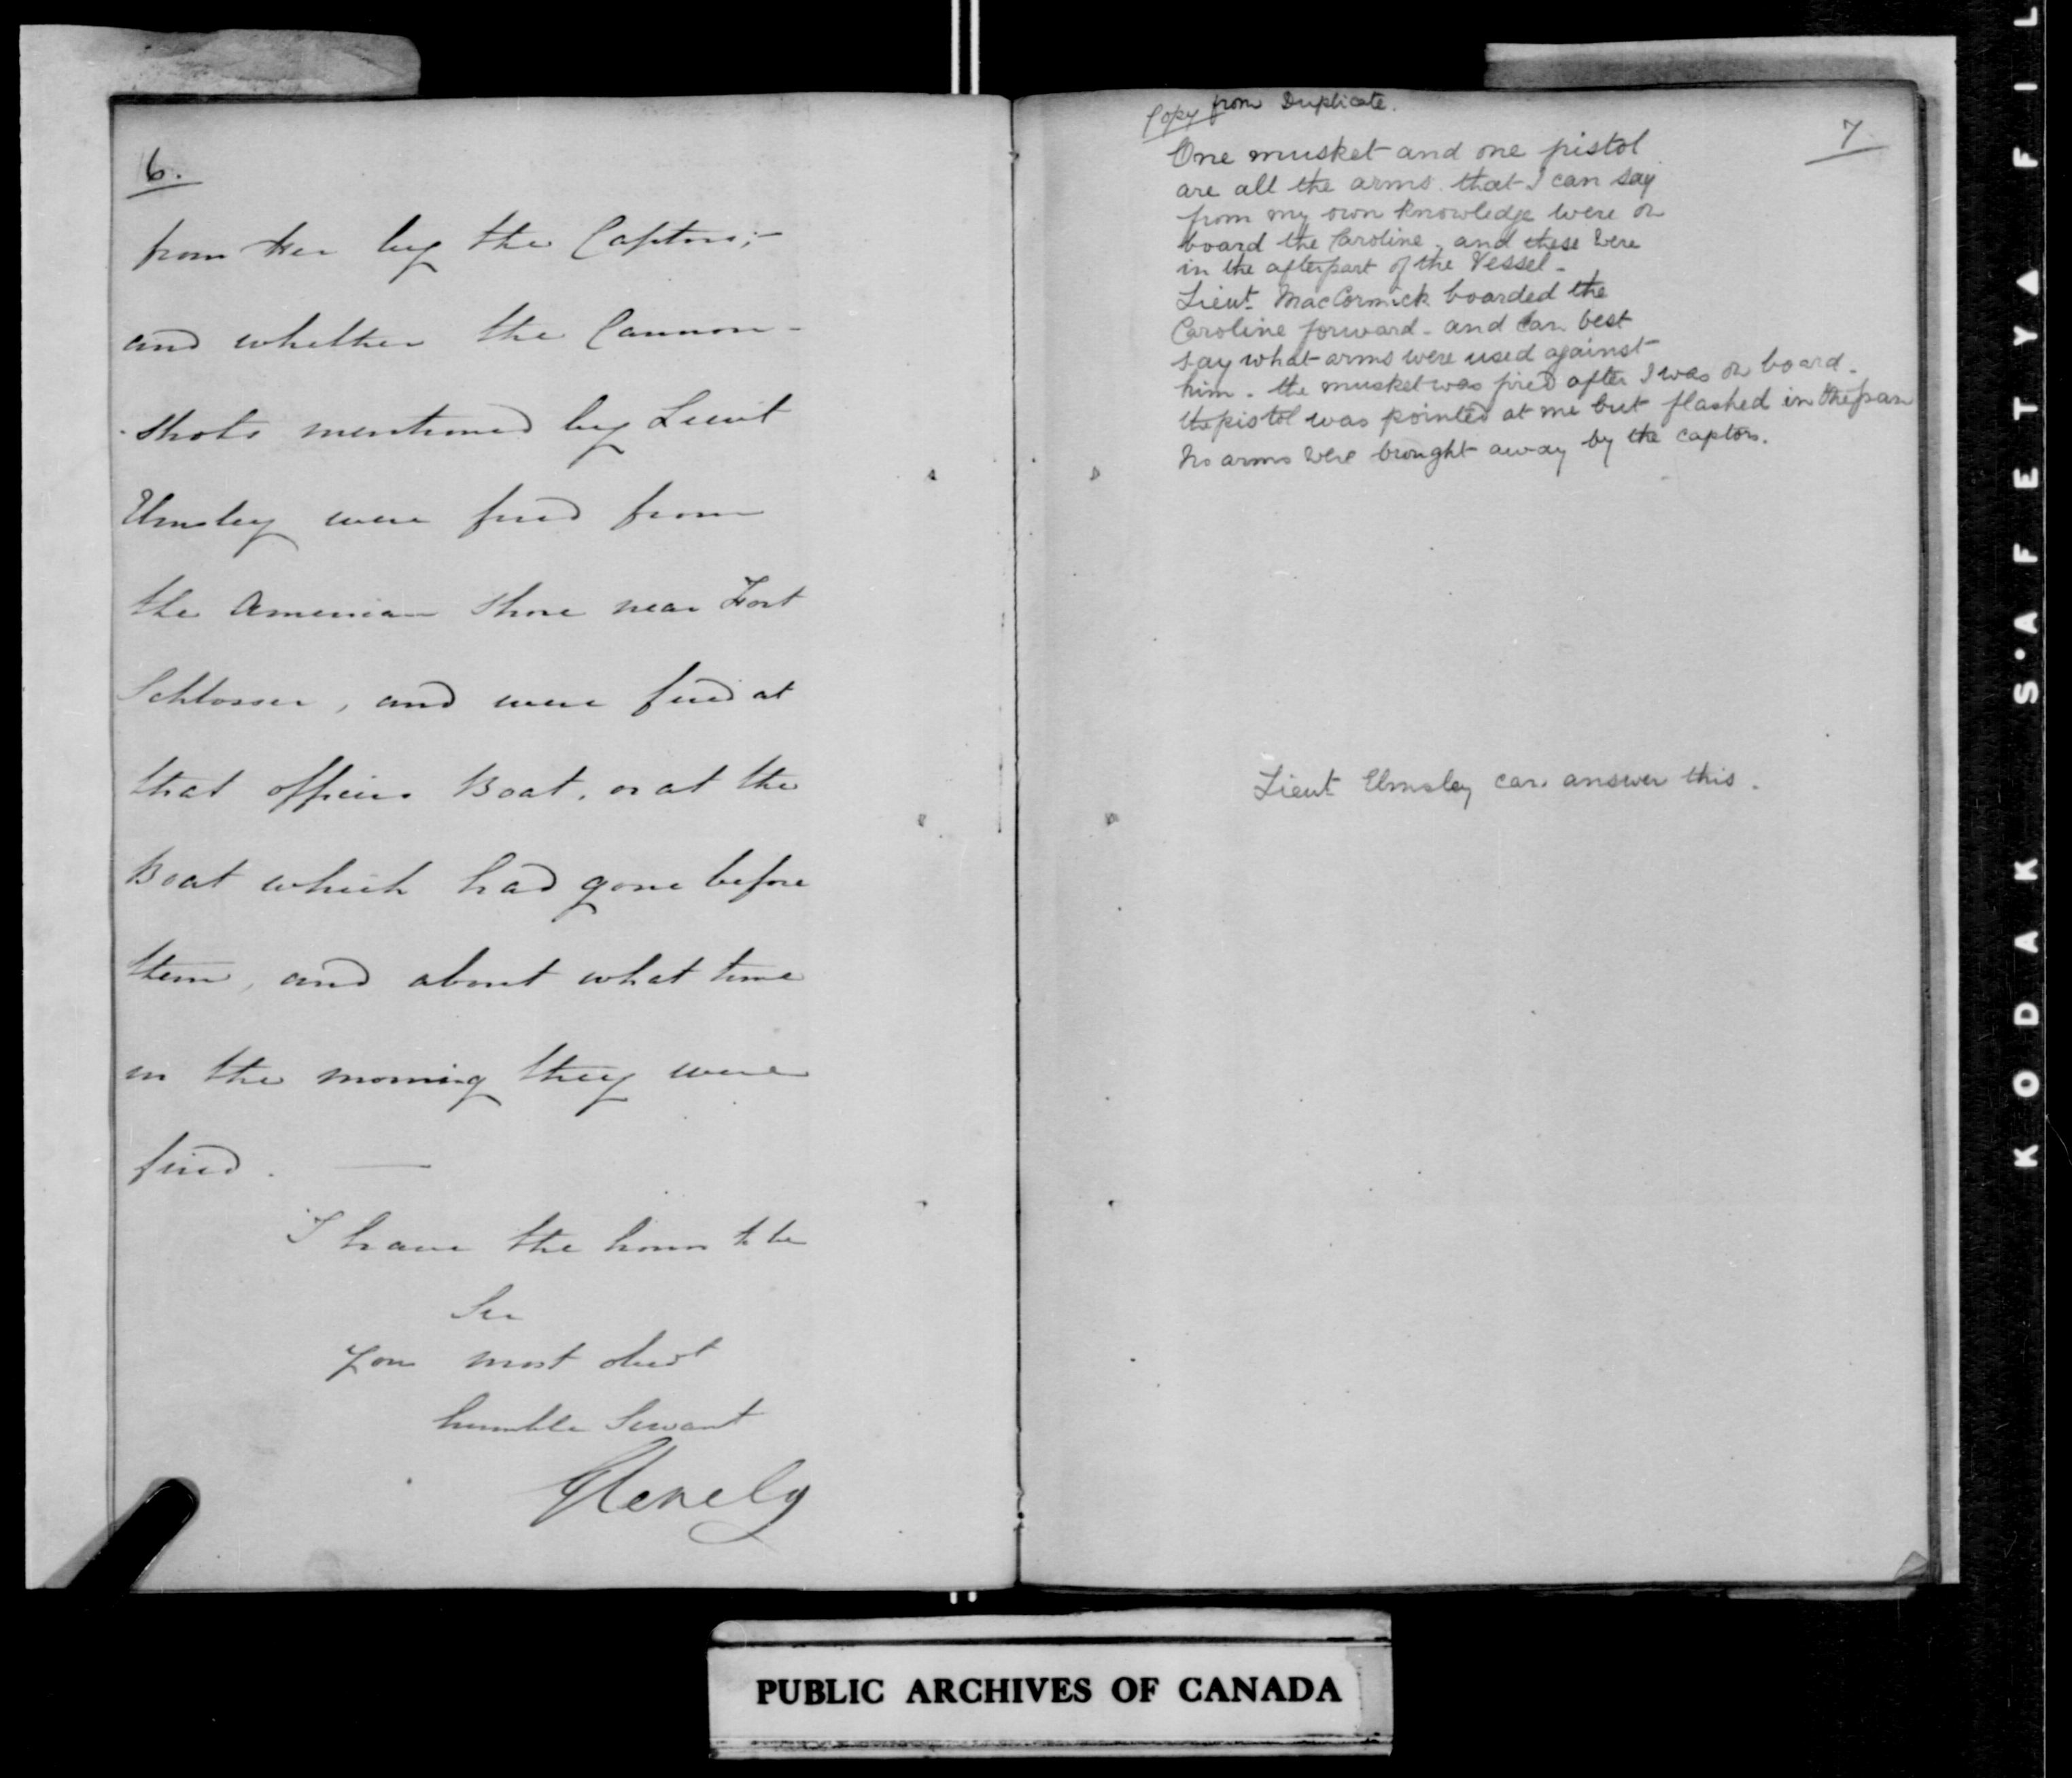 6.
from her by the Captors;-
and whether the Cannon-
shots mentioned by Lieut
Elmsley were fired from
the American Shore near Fort
Schlosser, and were fired at
that officers Boat, or at the
Boat which had gone before
them, and about what time
in the morning they were
fired.
I have the honor to be
Sir
Your most obedt
humble Servant
Glenelg
7
Copy from Duplicate.
One musket and one pistol
are all the arms that I can say
from my own knowledge were on
board the Caroline, and these were
in the afterpart of the Vessel-
Lieut. MacCormick boarded the
Caroline forward- and can best
say what arms were used against
him- the musket was fired after I was on board-
the pistol was pointed at me but flashed in the pan
No arms were brought away by the captors.
Lieut Elmsley can answer this.
PUBLIC ARCHIVES OF CANADA
KODAK S·AFETY▲FIL